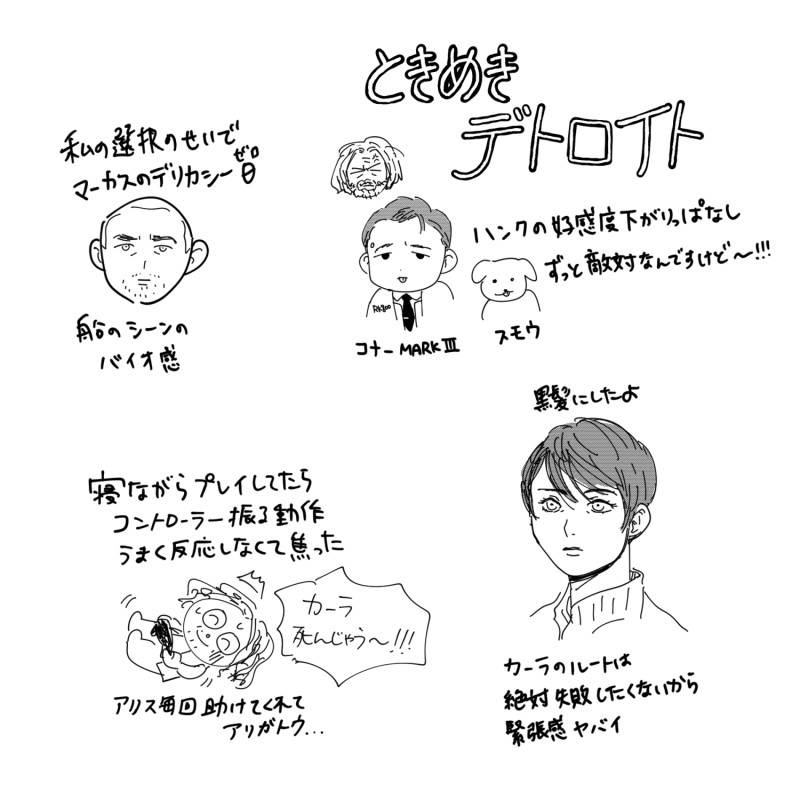 ときめき
デトロイト
私の選択のせいで
マーカスのデリカシー0
ゼロ
船のシーンの
バイオ感
RK800
コナー MARK Ⅲ
ハンクの好感度下がりっぱなし
ずっと敵対なんですけど〜!!!
スモウ
黒髪にしたよ
寝ながらプレイしてたら
コントローラー振る動作
うまく反応しなくて焦った
カーラ
死んじゃう〜!!!
アリス毎回助けてくれて
アリガトウ...
カーラのルートは
絶対失敗したくないから
緊張感ヤバイ